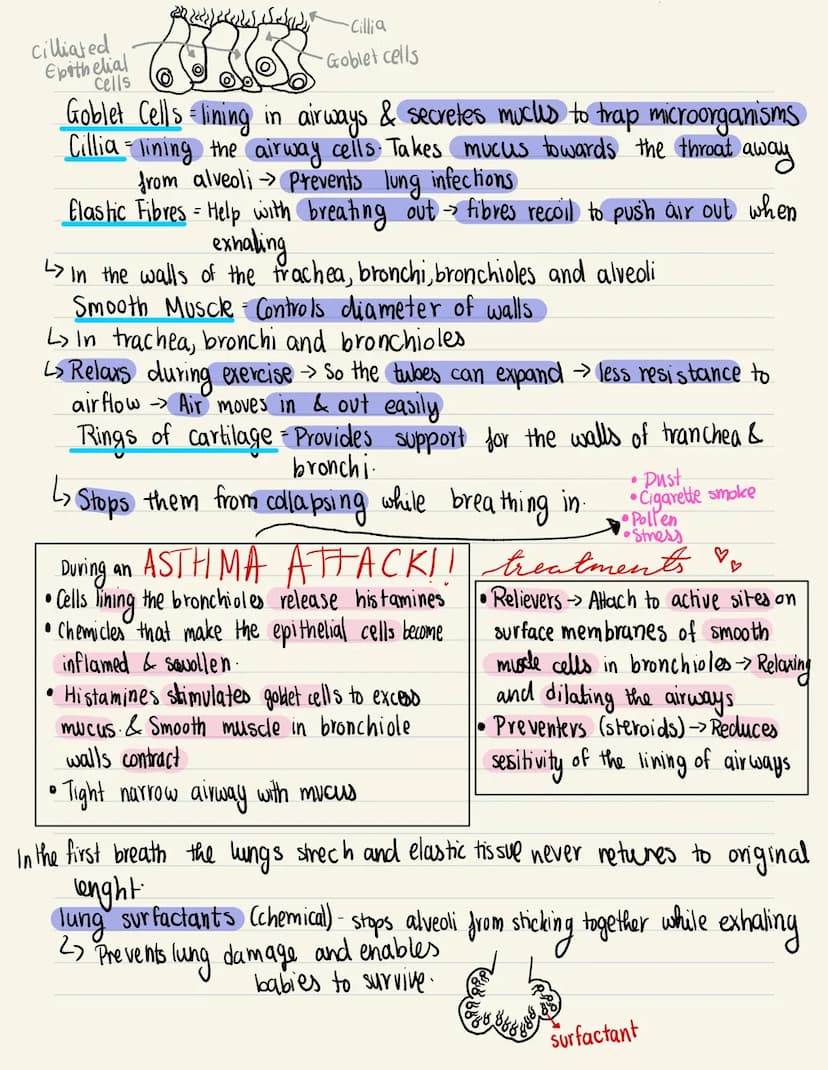 Cillia
Cilliated
Epithelial
Cells
Goblet cells
Goblet Cells = lining in airways & secretes mucus to trap microorganisms
Cillia = lining the airway cells. Takes mucus towards the throat away
from alveoli → Prevents lung infections
Elastic Fibres = Help with breating out → fibres recoil to push air out when
exhaling
↳ In the walls of the trachea, bronchi, bronchioles and alveoli
Smooth Muscle = Controls diameter of walls
↳ In trachea, bronchi and bronchioles
↳ Relaxs during exercise → So the tubes can expand → less resistance to
airflow → Air moves in & out easily
Rings of cartilage = Provides support for the walls of tranchea &
bronchi.
↳ Stops them from collapsing while breathing in.
• Dust
• Cigarette smoke
• Pollen
• Stress
During an ASTHMA ATTACK!!
• Cells lining the bronchioles release histamines
• Chemicles that make the epithelial cells become
inflamed & swollen.
• Histamines stimulates goblet cells to excess
mucus. & Smooth muscle in bronchiole
walls contract
• Tight narrow airway with mucus
treatments ♡♡
• Relievers → Attach to active sites on
surface membranes of smooth
muscle cells in bronchioles → Relaxing
and dilating the airways
• Preventers (steroids) → Reduces
sesitivity of the lining of airways
In the first breath the lungs strech and elastic tissue never retures to original
lenght.
lung surfactants (chemical) - stops alveoli from sticking together while exhaling
↳ Prevents lung damage and enables
babies to survive.
surfactant